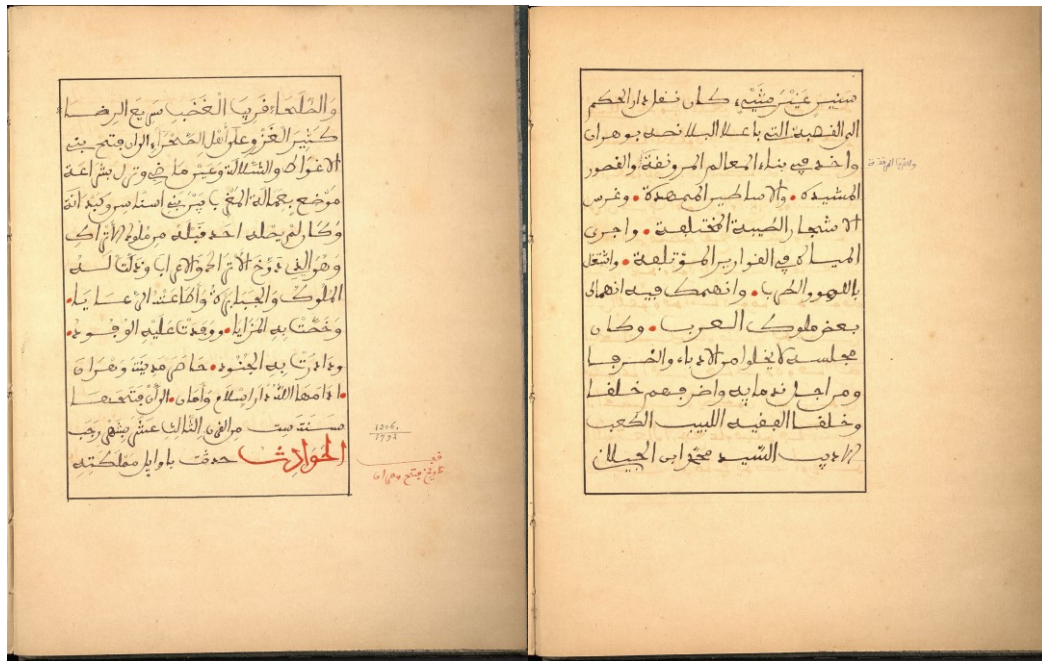 سنين غير مثنية، كان نقل دار الحكم
الى القصبة التي باعلا البلانصه بوهران
واخذ في بناء المعالم المرونقة والقصور
المشيدة • والاساطير الممهدة • وغرس
الاشجار الطيبة المختلفة • واجرى
المياه في القوارير المؤتلفة • واشتغل
باللهو والطرب • وانهمك فيه انهماك
بعض ملوك العرب • وكان
مجلسه لا يخلوا من الادباء والظرفا
ومن اجل ندمايه واظرفهم خلقا
وخلقا الفقيه اللبيب
الاديب السيد محمد ابن الجيلان
وَالصُّلَحَاءِ قريبَ الْغَضَبِ سَرِيعَ الرضَاءِ
كَثِيرَ الْغَزْوِ عَلَى أَهْلِ الصَّحْرَاءِ الى ان فتح بني
الاغواط والشلالة وَغَيْرَ مَا ونزل بشراعة
مَوْضع بِعمالة المغرب
وَكَانَ لَمْ يصله احد قَبْلَهُ من ملوك الاتراك
وَهْوَ الذِي دَوَّخَ الاتراك والاعراب وَذَلَّتْ لَهُ
الملوك وَالجَبَابِرَةُ وَأَطَاعَتْهُ الرَّعَايَا •
وَخُصَّتْ بِهِ المَزَايَا • ووفدت عَلَيْهِ الوُفُودُ •
ودارت بِهِ الجُنُود • حَاصَرَ مَدِينَةَ وَهْرَانَ
• ادَامَهَا اللَّهُ دَارَ إِسْلَام وَأَمَان • الى أَنْ فَتَحَهَا
سَنَةَ سِتّ مِن القرن الثَّالِث عَشَر بِشَهْرِ رَجَب
1206
1792
الحَوَادِث حدثت باوايل مملكته
قف
تاريخ فتح وهران